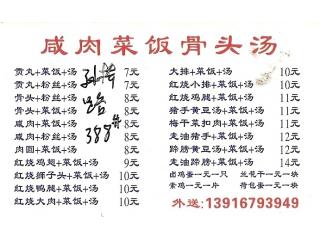 咸肉菜饭骨头汤
贡丸+菜饭+汤 7元
贡丸+粉丝+汤 7元
骨头+菜饭+汤 8元
骨头+粉丝+汤 8元
咸肉+菜饭+汤 8元
咸肉+粉丝+汤 8元
肉圆+菜饭+汤 8元
红烧鸡翅+菜饭+汤 9元
红烧狮子头+菜饭+汤 10元
红烧鸭腿+菜饭+汤 10元
红烧大肉+菜饭+汤 10元
路
388弄
大排+菜饭+汤 10元
红烧小排+菜饭+汤 10元
红烧鸡腿+菜饭+汤 11元
猪手黄豆汤+菜饭+汤 11元
梅干菜扣肉+菜饭+汤 11元
走油猪手+菜饭+汤 12元
蹄髈黄豆汤+菜饭+汤 12元
走油蹄髈+菜饭+汤 14元
卤鸡蛋一元一只 兰花干一元一块
素鸡一元一片 荷包蛋一元一块
外送:13916793949